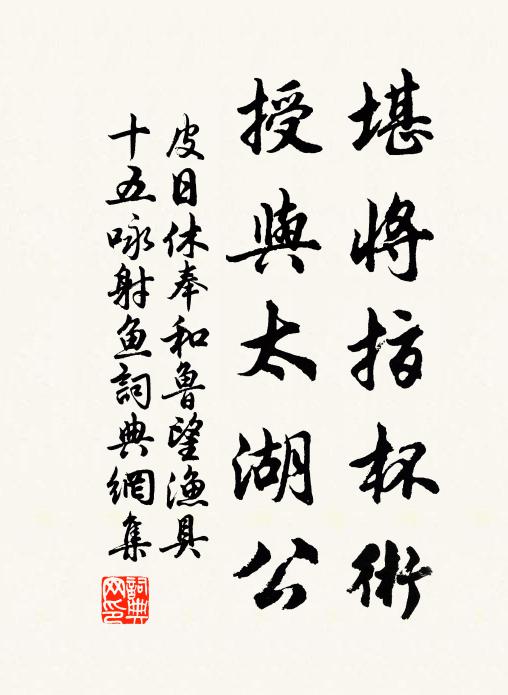 堪將指杯術
授與太湖公
皮日休奉和魯望漁具
十五咏射魚詞典網集
詞典